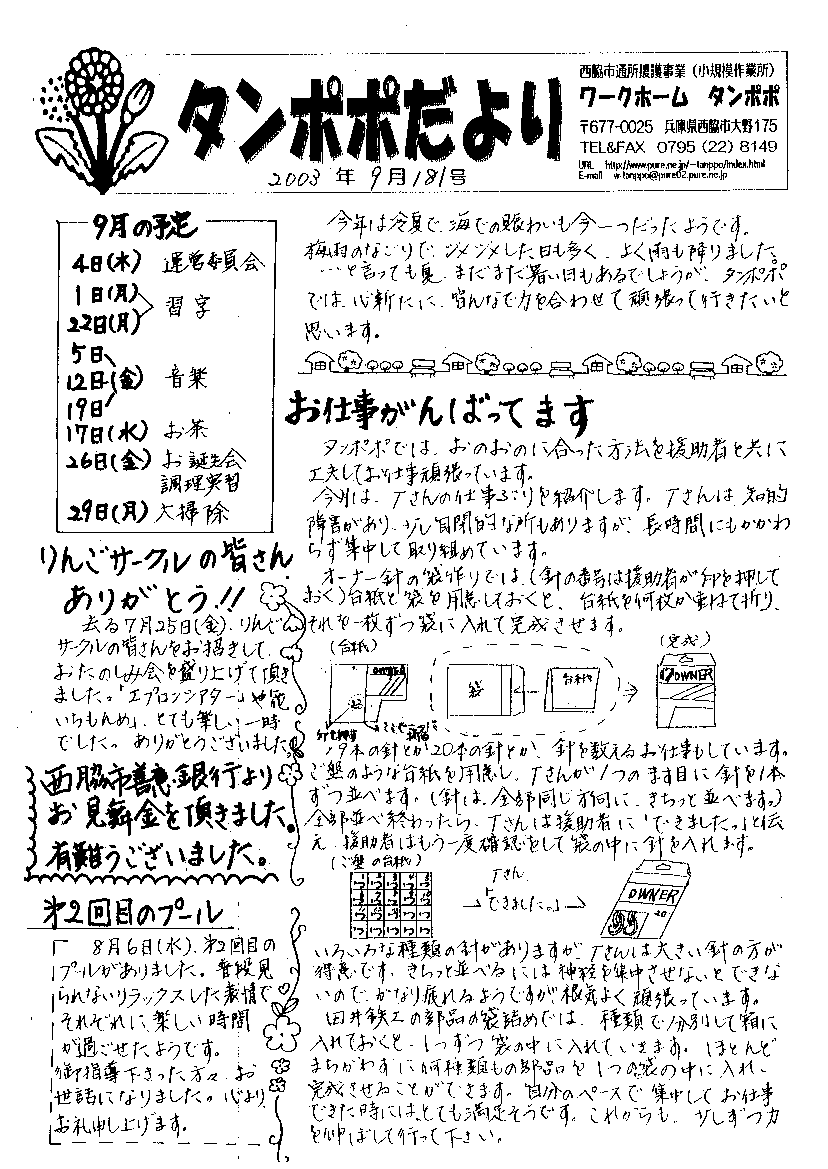 タンポポだより
2003年9月181号
西脇市通所援護事業(小規模作業所)
ワークホーム タンポポ
〒677-0025 兵庫県西脇市大野175
TEL&FAX 0795(22)8149
URL http://www.pure.ne.jp/~tanppo/index.html
E-mail w-tanppo@pure02.pure.ne.jp
9月の予定
4日(木) 運営委員会
1日(月)
22日(月) 習字
5日
12日(金) 音楽
19日
17日(水) お茶
26日(金) お誕生会
調理実習
29日(月) 大掃除
りんごサークルの皆さん
ありがとう!!
去る7月25日(金)、りんご
サークルの皆さんをお招きして、
おたのしみ会を盛り上げて頂き
ました。「エプロンシアター」や「花
いちもんめ」、とても楽しい一時
でした。ありがとうございました。
西脇市善意銀行より
お見舞金を頂きました。
有難うございました。
第2回目のプール
8月6日(水)、第2回目の
プールがありました。普段見
られないリラックスした表情で
それぞれに楽しい時間
が過ごせたようです。
御指導下さった方々、お
世話になりました。心より
お礼申し上げます。
今年は冷夏で、海での賑わいも今一つだったようです。
梅雨のなごりで、ジメジメした日も多く、よく雨も降りました。
…と言っても夏、まだまだ暑い日もあるでしょうが、タンポポ
では、心新たに、皆んなで力を合わせて頑張って行きたいと
思います。
お仕事がんばってます
タンポポでは、おのおのに合った方法を援助者と共に
工夫してお仕事頑張っています。
今月は、Tさんの仕事ぶりを紹介します。Tさんは、知的
障害があり、少し自閉的な所もありますが、長時間にもかかわ
らず集中して取り組めています。
オーナー針の袋作りでは、(針の番号は援助者が印を押して
おく)台紙と袋を用意しておくと、台紙を何枚か重ねて折り、
それを一枚ずつ袋に入れて完成させます。
(台紙)
(完成)
OWNER
袋
台紙
OWNER
19本の針とか20本の針とか、針を数えるお仕事もしています。
ご盤のような台紙を用意し、Tさんが1つのます目に針を1本
ずつ並べます。(針は、全部同じ方向に、きちっと並べます。)
全部並べ終わったら、Tさんは援助者に「できました。」と伝
え、援助者はもう一度確認をして袋の中に針を入れます。
(ご盤の台紙)
Tさん
「できました。」
OWNER
20
いろいろな種類の針がありますが、Tさんは大きい針の方が
得意です。きちっと並べるには神経を集中させないとできな
いので、かなり疲れるようですが根気よく頑張っています。
田井鉄工の部品の袋詰めでは、種類で分別して箱に
入れておくと、1つずつ袋の中に入れていきます。ほとんど
まちがわずに何種類もの部品を1つの袋の中に入れ、
完成させることができます。自分のペースで集中してお仕事
できた時にはとても満足そうです。これからも、少しずつ力
を伸ばして行って下さい。